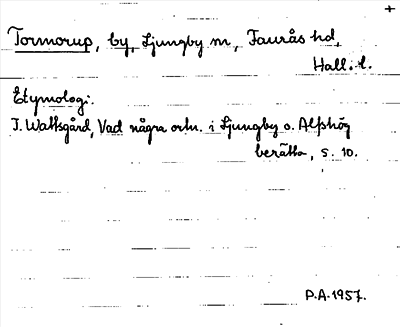 +
Tormorup, by, Ljungby sn, Faurås hd,
Hall. l.
Etymologi.
J. Wallsgård, Vad några ortn. i Ljungby o. Alfshög
berätta, s. 10.
P.A. 1957.